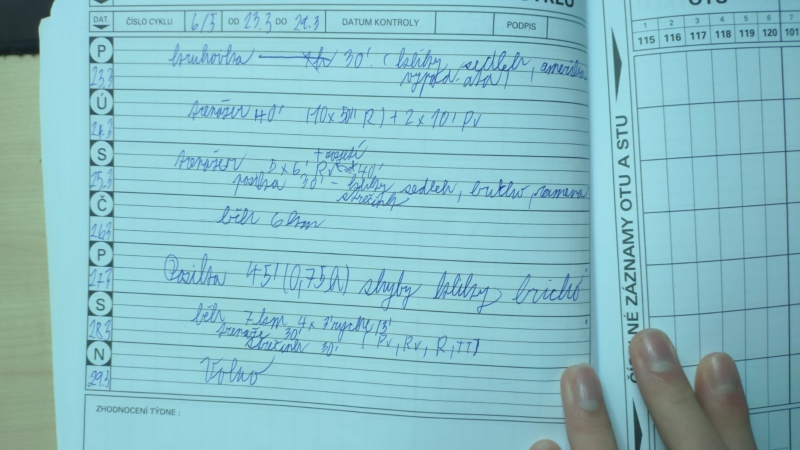 DAT. ČÍSLO CYKLU 6/3 OD 23.3 DO 29.3 DATUM KONTROLY PODPIS
P 23.3 kruhovka 30' (kliky, sedleh,
Ú 24.3 trenažer 40' (10x50'' R) + 2x10' Pv
S 25.3 trenažer 5x6' Rv 40'
posilka 30' - kliky sedleh, břicho, ramena
strečink
Č 26.3 běh 6 km
P 27.3 Posilka 45' (0,75h) shyby kliky břicho
S 28.3 běh 7 km 4x3' rychle /3'
trenažer 30' (Pv, Rv, R, TT)
strečink 30'
N 29.3 Volno
ZHODNOCENÍ TÝDNE :
OTU
1 2 3 4 5 6 7
115 116 117 118 119 120 101
ČÍSELNÉ ZÁZNAMY OTU A STU